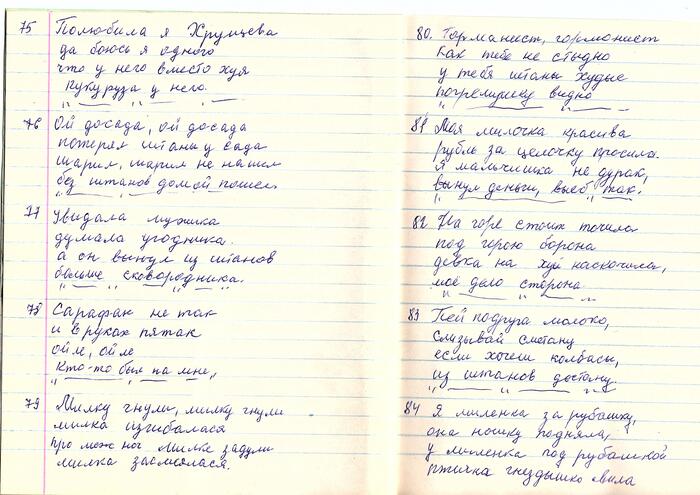 75 Полюбила я Хрущева
да боюсь я одного
что у него вместо хуя
кукуруза у него.
76 Ой досада, ой досада
потерял штаны у сада
шарил, шарил не нашел
без штанов домой пошел
77 Увидала мужика
думала угодника.
а он вынул из штанов
больше сковородника.
75 Сарафан не так
и в руках пятак
ой ле, ой ле
Кто-то был на мне,
79 Милку гнули, милку гнули
милка изгибалася
про меж ног милке задули
милка засмиялася.
80. Горманист, гормонист
как тебе не стыдно
у тебя штаны худые
погремушку видно
81 Моя милочка красива
рубль за целочку просила.
я мальчишка не дурак,
вынул деньги, выеб так.
82 На горе стоит точило
под горою борона
девка на хуй наскочила,
моё дело сторона
83 Пей подруга молоко,
слизывай сметану
если хочеш колбасы,
из штанов достану.
84 Я миленка за рубашку,
она ношку подняла,
у миленка под рубашкой
птичка гнездышко вила